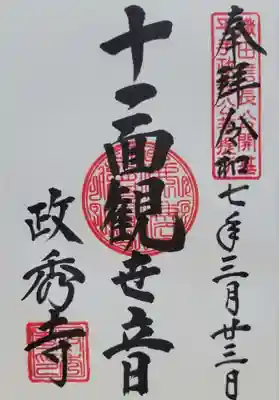 奉拝 令和七年三月廿三日
十一面観世音
政秀寺